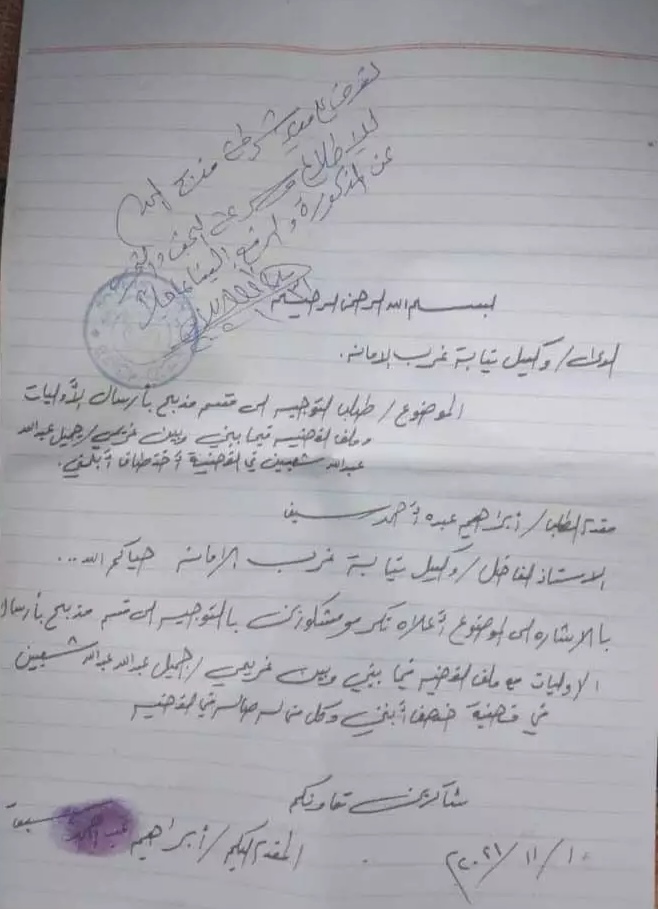 للاطلاع
عن المذكورة والرفع إلينا عاجلا
بسم الله الرحمن الرحيم
وكيل نيابة غرب الامانه.
الموضوع / طلب التوجيه الى قسم مذبح بأرسال الأوليات
وملف القضيه فيما بيني وبين غريمي / جميل عبدالله
عبدالله شعبين في القضية أختطاف أبنتي.
مقدم الطلب / أبراهيم عبده أحمد سيف
الاستاذ الفاضل / وكيل نيابة غرب الامانه حياكم الله ...
بالاشاره الى الموضوع أعلاه تكرمو مشكورين بالتوجيه الى قسم مذبح بأرسال
الاوليات مع ملف القضيه فيما بيني وبين غريمي / جميل عبدالله عبدالله شعبين
في قضية خطف أبنتي وكل من له صله في القضيه
شاكرين تعاونكم
المقدم اليكم / أبراهيم عبده احمد سيف
١٠ / ١١ / ٢٠٢١م